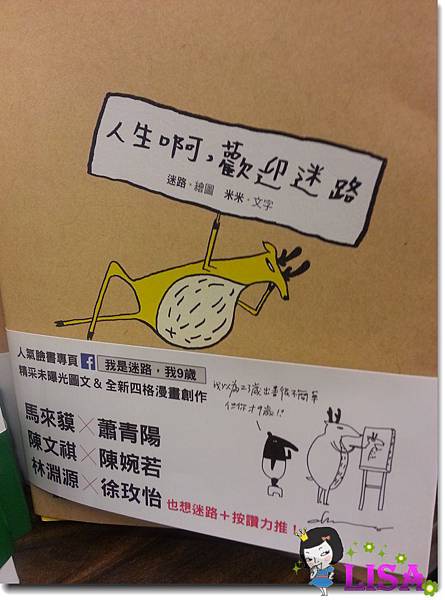 人生啊,歡迎迷路
迷路·繪圖 米米·文字
人氣臉書專頁 f 我是迷路,我9歲
精采未曝光圖文&全新四格漫畫創作
我以為23歲出書很不簡單
但你才9歲!?
馬來貘×蕭青陽
陳文祺×陳婉若
林淵源×徐玫怡 也想迷路+按讚力推!
LISA